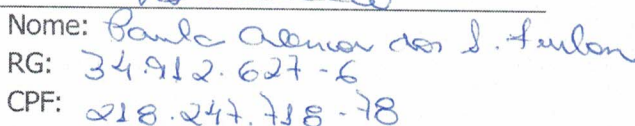 Nome: Paula Alencar dos S. Furlan
RG: 34.912.627-6
CPF: 218.247.718-78